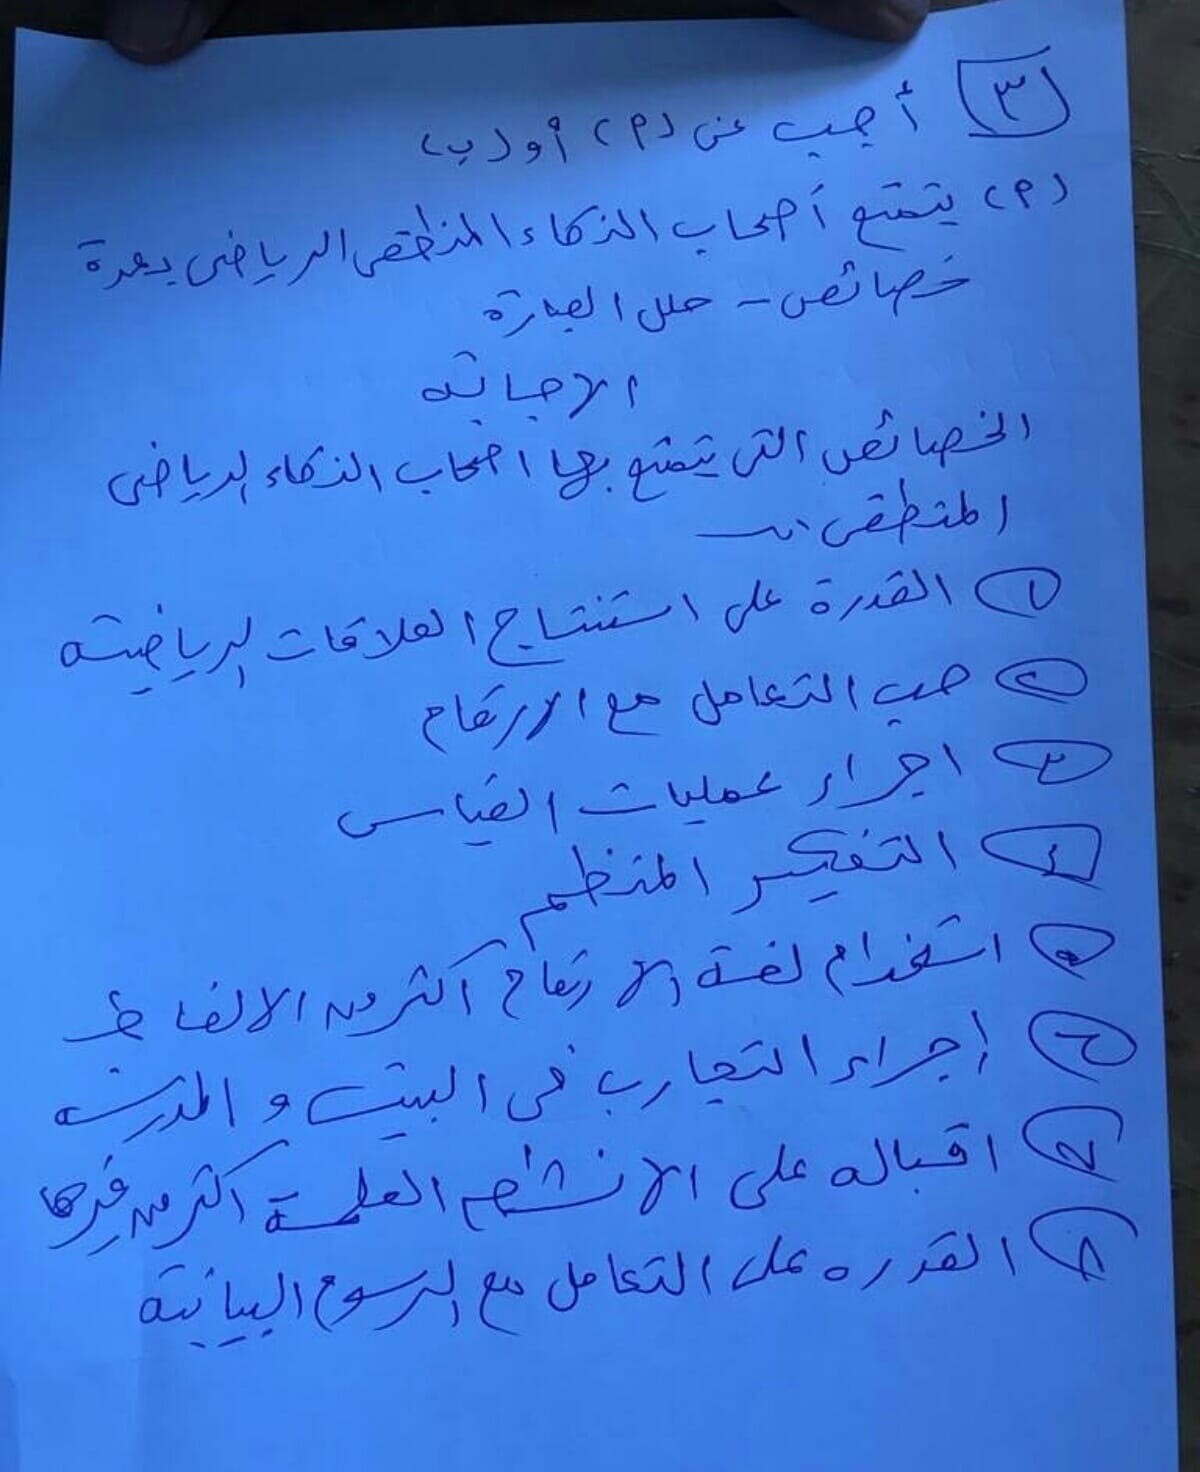 ٣ أجب عن (م) أو (ب)
(م) يتمتع أصحاب الذكاء المنطقى الرياضى بعدة
خصائص - حلل العبارة
الاجابة
الخصائص التى يتمتع بها اصحاب الذكاء الرياضى
المنطقى :-
١ القدرة على استنتاج العلاقات الرياضية
٢ حب التعامل مع الارقام
٣ اجراء عمليات القياس
٤ التفكير المنظم
٥ استخدام لغة الارقام أكثر من الالفاظ
٦ إجراء التجارب فى البيت و المدرسة
٧ اقباله على الانشطه العلمية اكثر من غيرها
٨ القدره على التعامل مع الرسوم البيانية